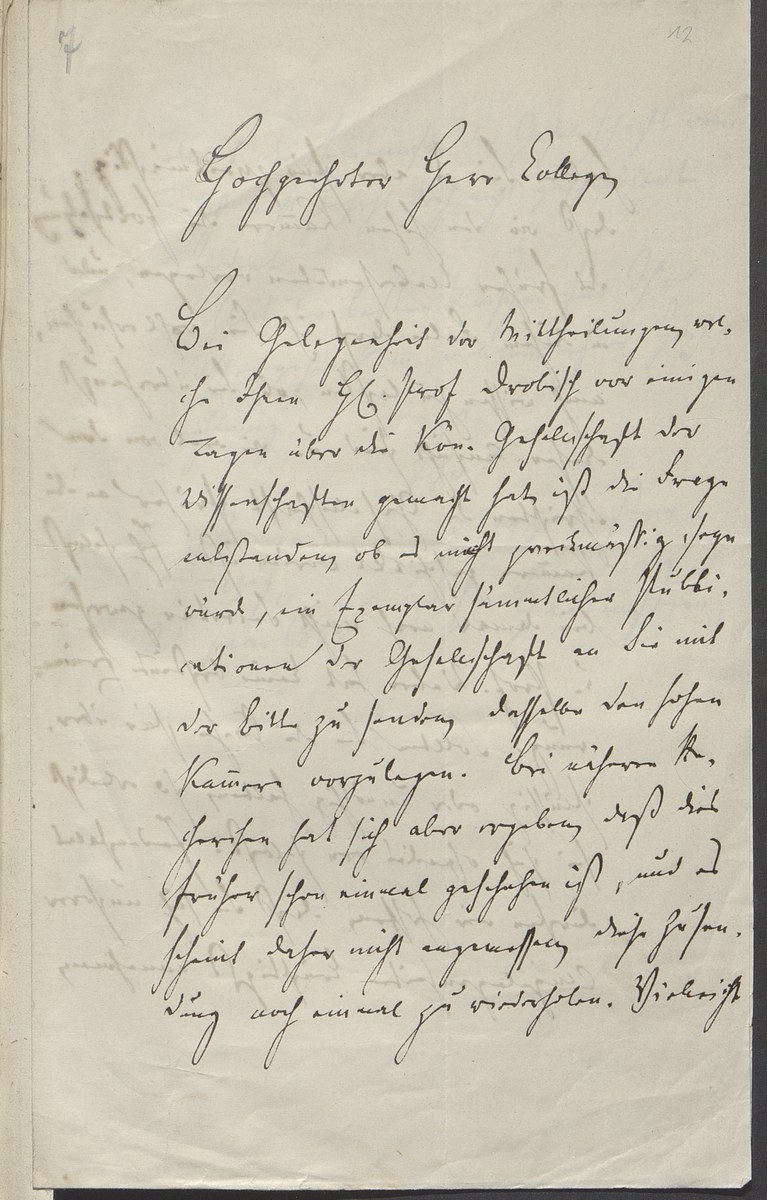 7
12
Hochgeehrter Herr College
Bei Gelegenheit der Mittheilungen, wel-
che Ihnen H. Prof Drobisch vor einigen
Tagen über die Kön. Gesellschaft der
Wissenschaften gemacht hat, ist die Frage
entstanden, ob es nicht zweckmässig seyn
würde, ein Exemplar sämmtlicher Publi-
cationen der Gesellschaft an Sie mit
der Bitte zu senden, dasselbe den hohen
Kam̅ern vorzulegen. Bei näheren Re-
cherchen hat sich aber ergeben, daß dies
früher schon einmal geschehen ist, und es
scheint daher nicht angemessen, diese Zusen-
dung noch einmal zu wiederholen. Vielleicht